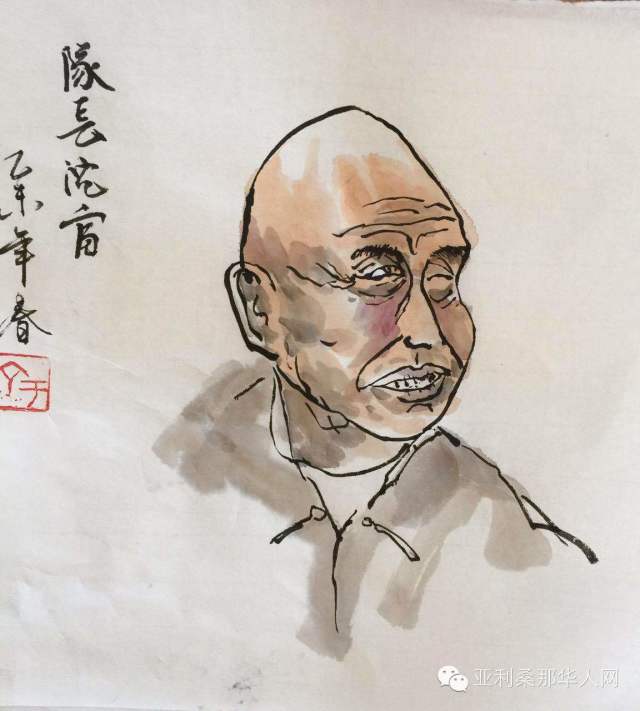 隊長沈富
乙未年春
亚利桑那华人网